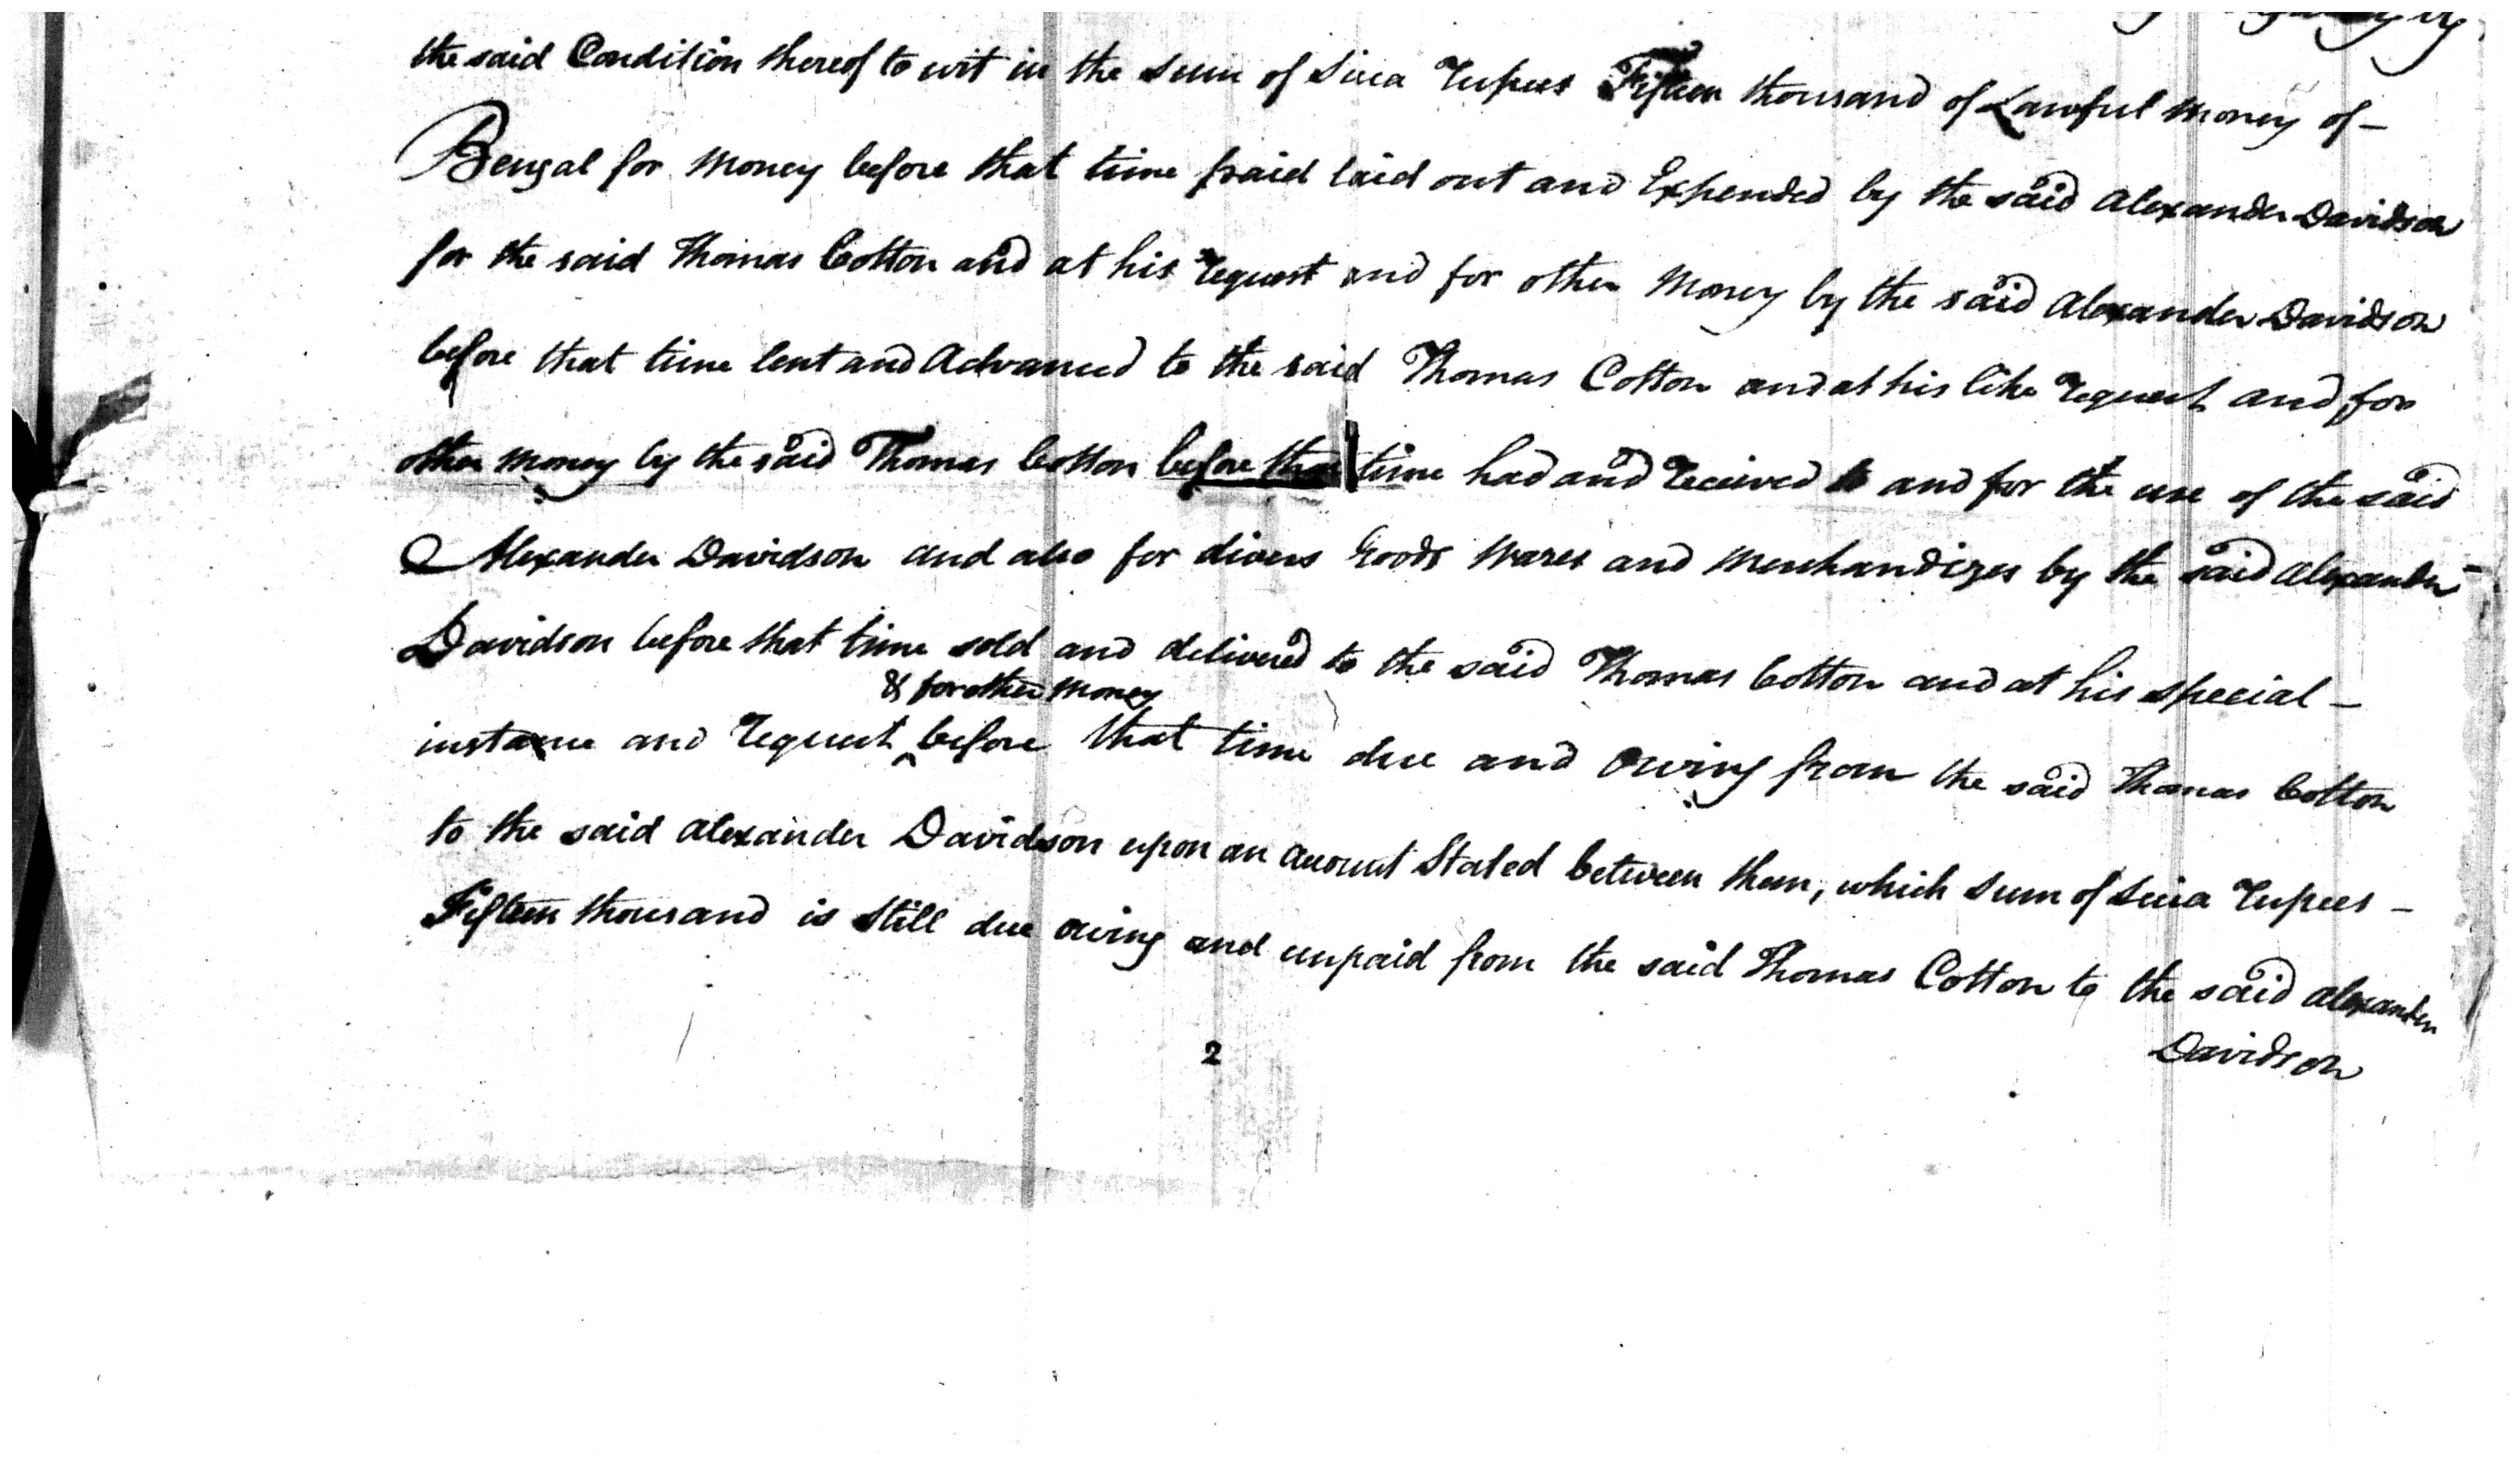 the said Condition thereof to wit in the Sum of Sicca Rupees Fifteen thousand of Lawful Money of -
Bengal for Money before that time paid laid out and Expended by the said Alexander Davidson
for the said Thomas Cotton and at his request and for other Money by the said Alexander Davidson
before that time lent and Advanced to the said Thomas Cotton and at his like request and for
other Money by the said Thomas Cotton before that time had and received to and for the use of the said
Alexander Davidson and also for divers Goods Wares and Merchandizes by the said Alexander -
Davidson before that time sold and delivered to the said Thomas Cotton and at his special -
& for other Money
instance and request ^ before that time due and Owing from the said Thomas Cotton
to the said Alexander Davidson upon an Account Stated between them, which Sum of Sicca Rupees -
Fifteen thousand is still due owing and unpaid from the said Thomas Cotton to the said Alexander
Davidson
2